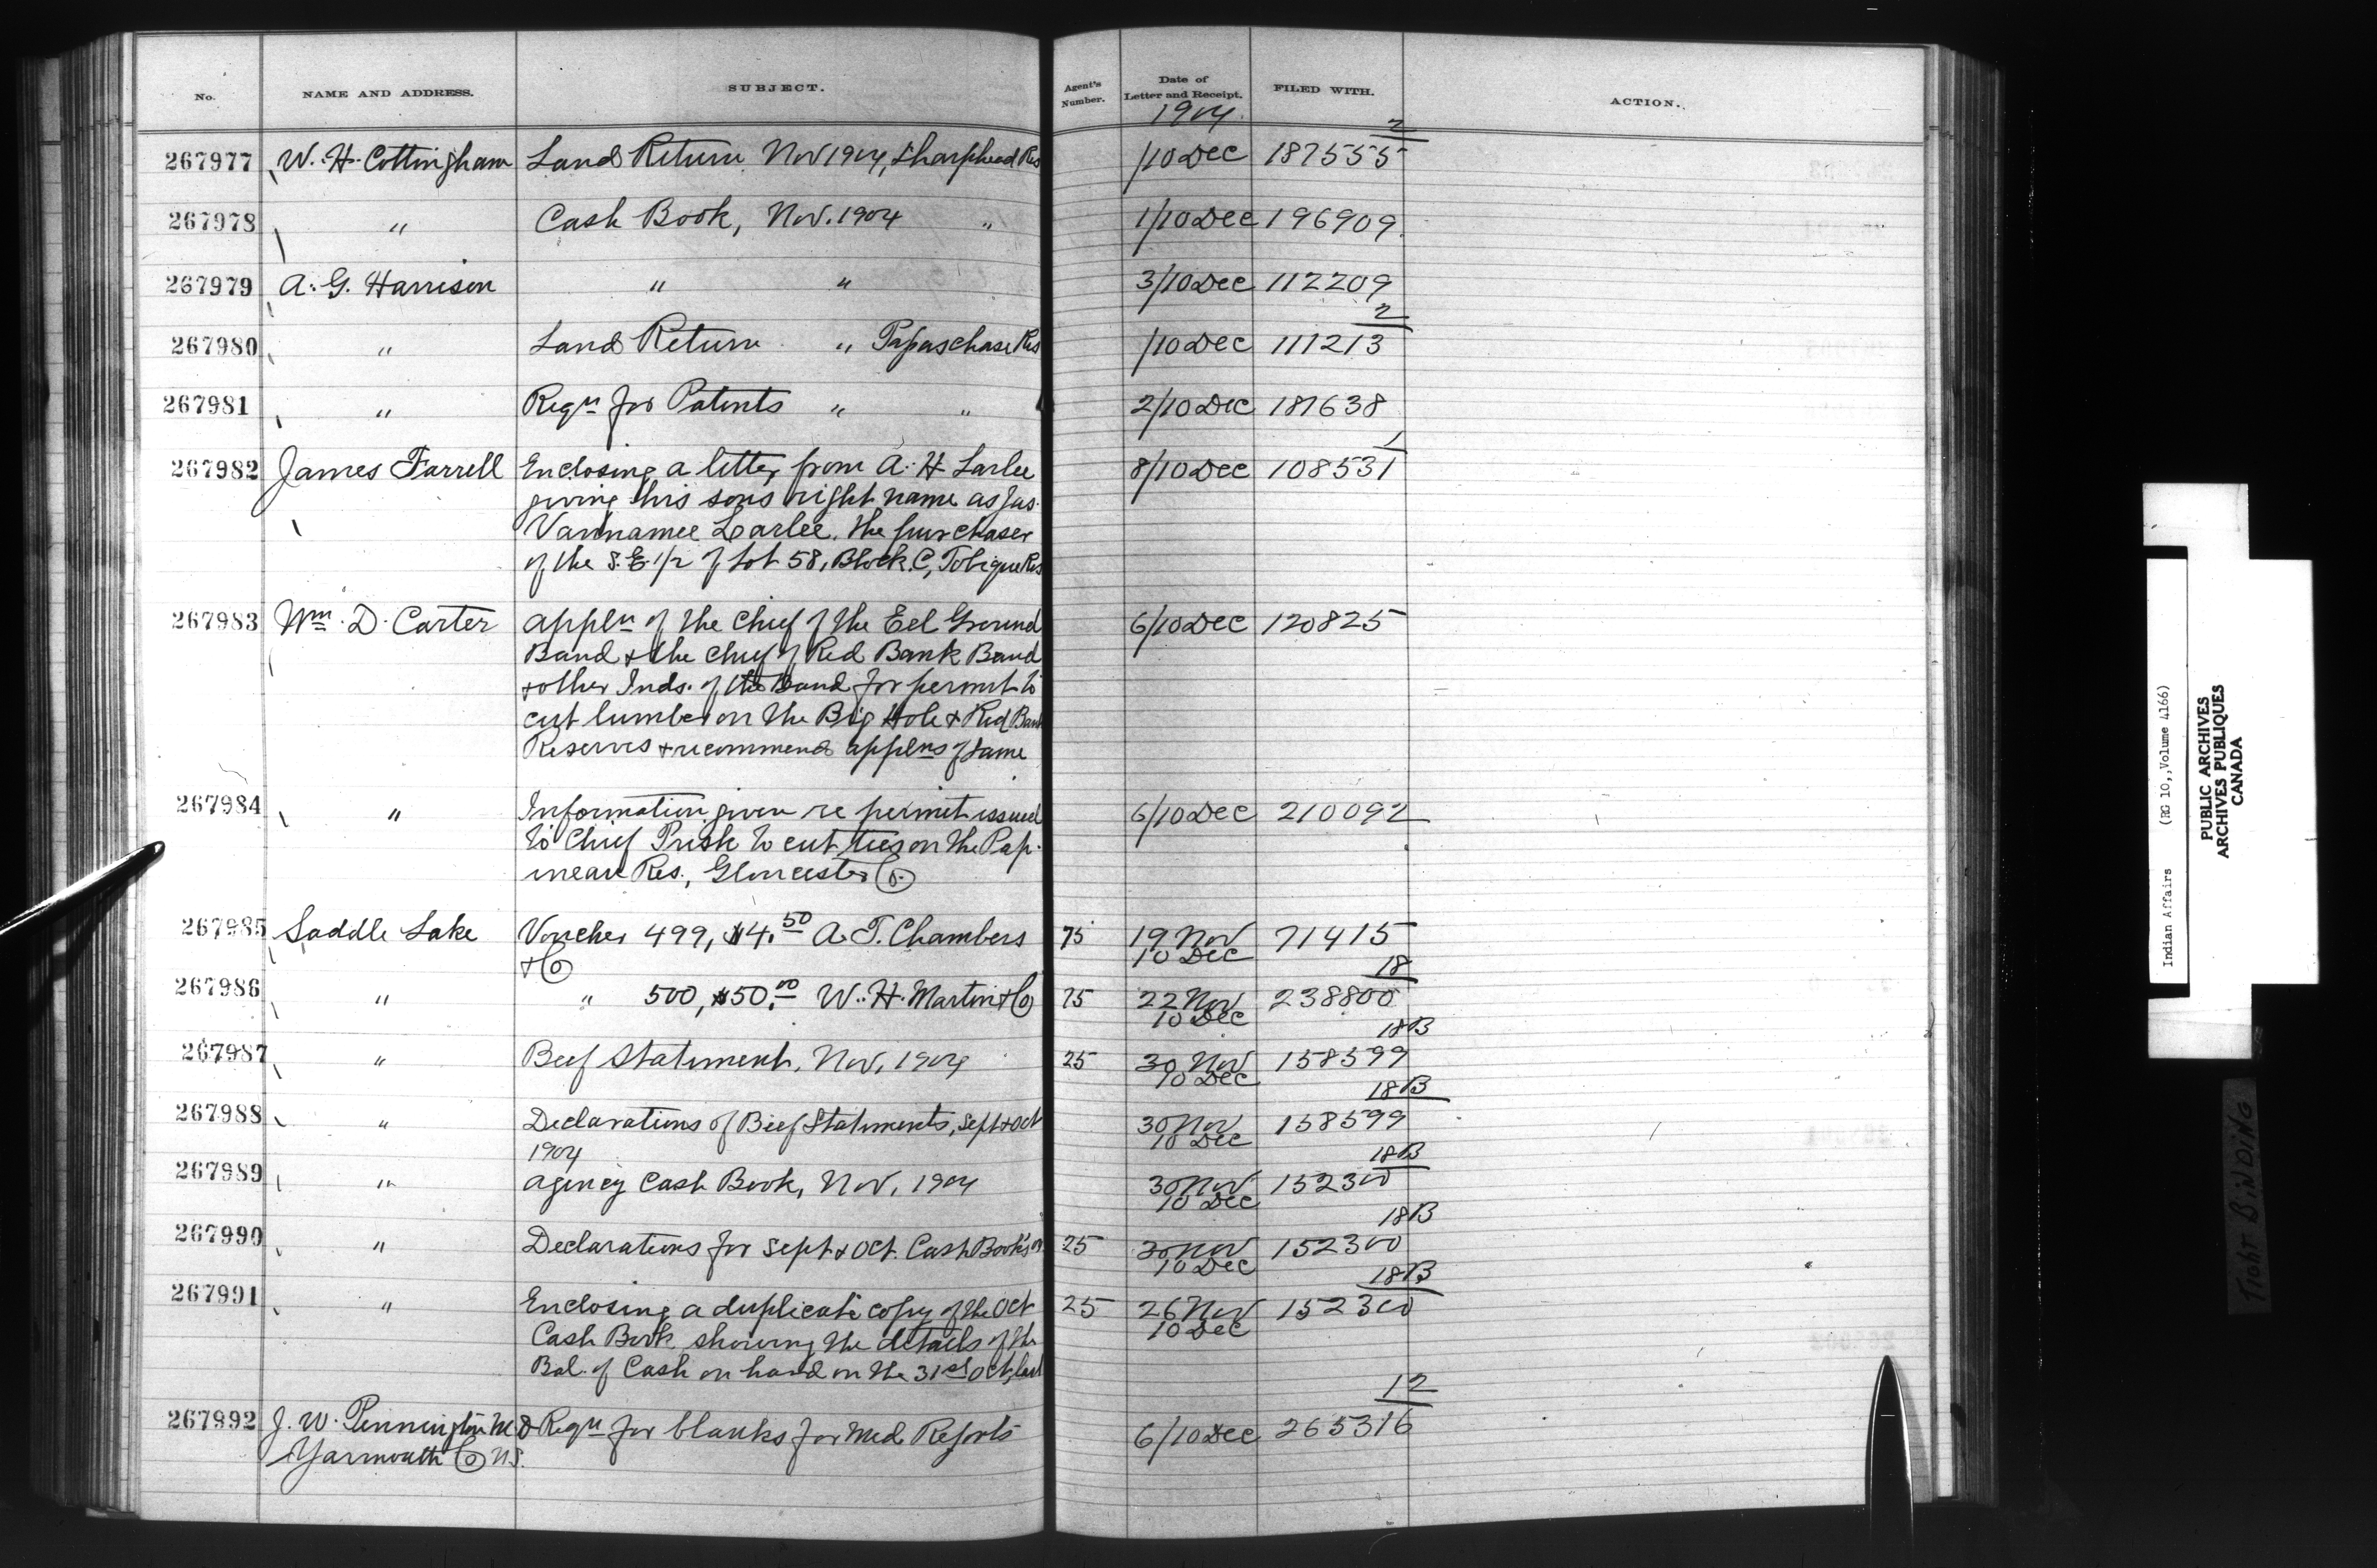 No. NAME AND ADDRESS. SUBJECT. Agent's Number. Date of Letter and Receipt. FILED WITH. ACTION.
1904
2
267977 W. H. Cottingham Land Return Nov 1904, Sharphead Res /10 Dec 187555
267978 " Cash Book, Nov. 1904 " 1/10 Dec 196909
267979 A. G. Harrison " " 3/10 Dec 112209
2
267980 " Land Return " Papaschase Res /10 Dec 111213
267981 " Reqn for Patents " " 2/10 Dec 187638
1
267982 James Farrell Enclosing a letter from A. H Larlee 8/10 Dec 108531
giving his sons right name as Jas.
Vannamee Larlee, the purchaser
of the S.E. 1/2 of Lot 58, Block C, Tobique Res
267983 Wm. D. Carter Appln of the Chief of the Eel Ground 6/10 Dec 120825
Band & the Chief of Red Bank Band
& other Inds. of the Band for permit to
cut lumber on the Big Hole & Red Bank
Reserves & recommends applns of same
267984 " Information given re permit issued 6/10 Dec 210092
to Chief Prisk to cut ties on the Pap-
ineau Res., Gloucester Co.
267985 Saddle Lake Voucher 499, $4.50 A. T. Chambers 75 19 Nov 71415
& Co 10 Dec
18
267986 " " 500, $50.00 W. H. Martin & Co 75 22 Nov 238800
10 Dec
18B
267987 " Beef Statement, Nov, 1904 25 30 Nov 158599
10 Dec
18B
267988 " Declarations of Beef Statements, Sept & Oct 30 Nov 158599
1904 10 Dec
18B
267989 " Agency Cash Book, Nov, 1904 30 Nov 152300
10 Dec
18B
267990 " Declarations for Sept & Oct. Cash Books 25 30 Nov 152300
10 Dec
18B
267991 " Enclosing a duplicate copy of the Oct 25 26 Nov 152300
Cash Book showing the details of the 10 Dec
Bal. of Cash on hand on the 31st Oct, last
12
267992 J. W. Pennington M.D Reqn for blanks for Med Reports 6/10 Dec 265316
Yarmouth Co N.S.
Indian Affairs (RG 10, Volume 4166)
PUBLIC ARCHIVES
ARCHIVES PUBLIQUES
CANADA
TIGHT BINDING